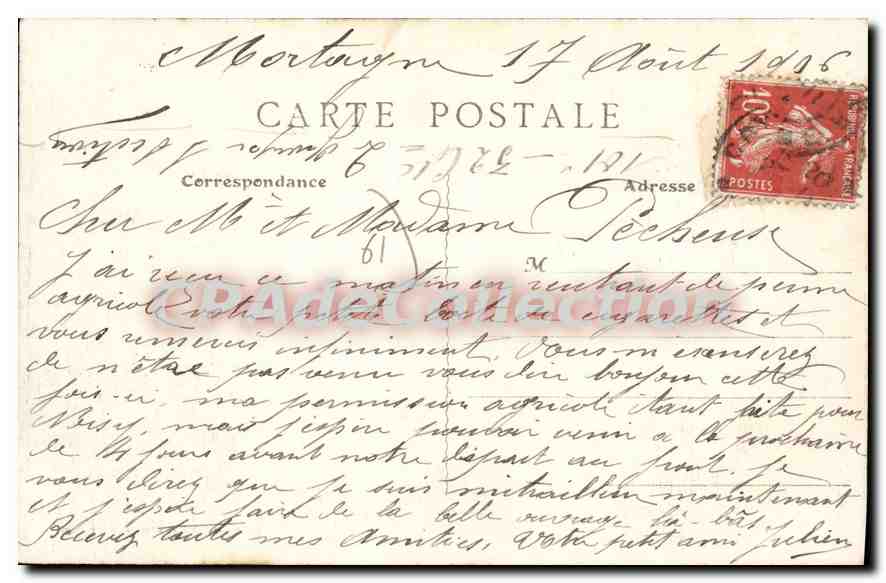 Mortagne 17 Août 1916
CARTE POSTALE
Correspondance
Adresse
10
POSTES
REPUBLIQUE FRANÇAISE
19
Cher Mr et Madame Pècheuse
M
J'ai reçu ce matin en rentrant de perme
agricole votre petite boite de cigarettes et
vous remercis infiniment. Vous m'excuserez
de n'être pas venu vous dire bonjour cette
fois-ci, ma permission agricole étant faite pour
Noisy, mais j'espère pouvoir venir à la prochaine
de 4 jours avant notre départ au front. Je
vous direz que je suis mitrailleur maintenant
et j'espère faire de la belle ouvrage là-bâs
Recevez toutes mes Amitiés. Votre petit ami Julien
CPAdeCollection.com